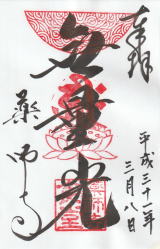 奉拝
平成三十一年
三月八日
無量光
薬師寺